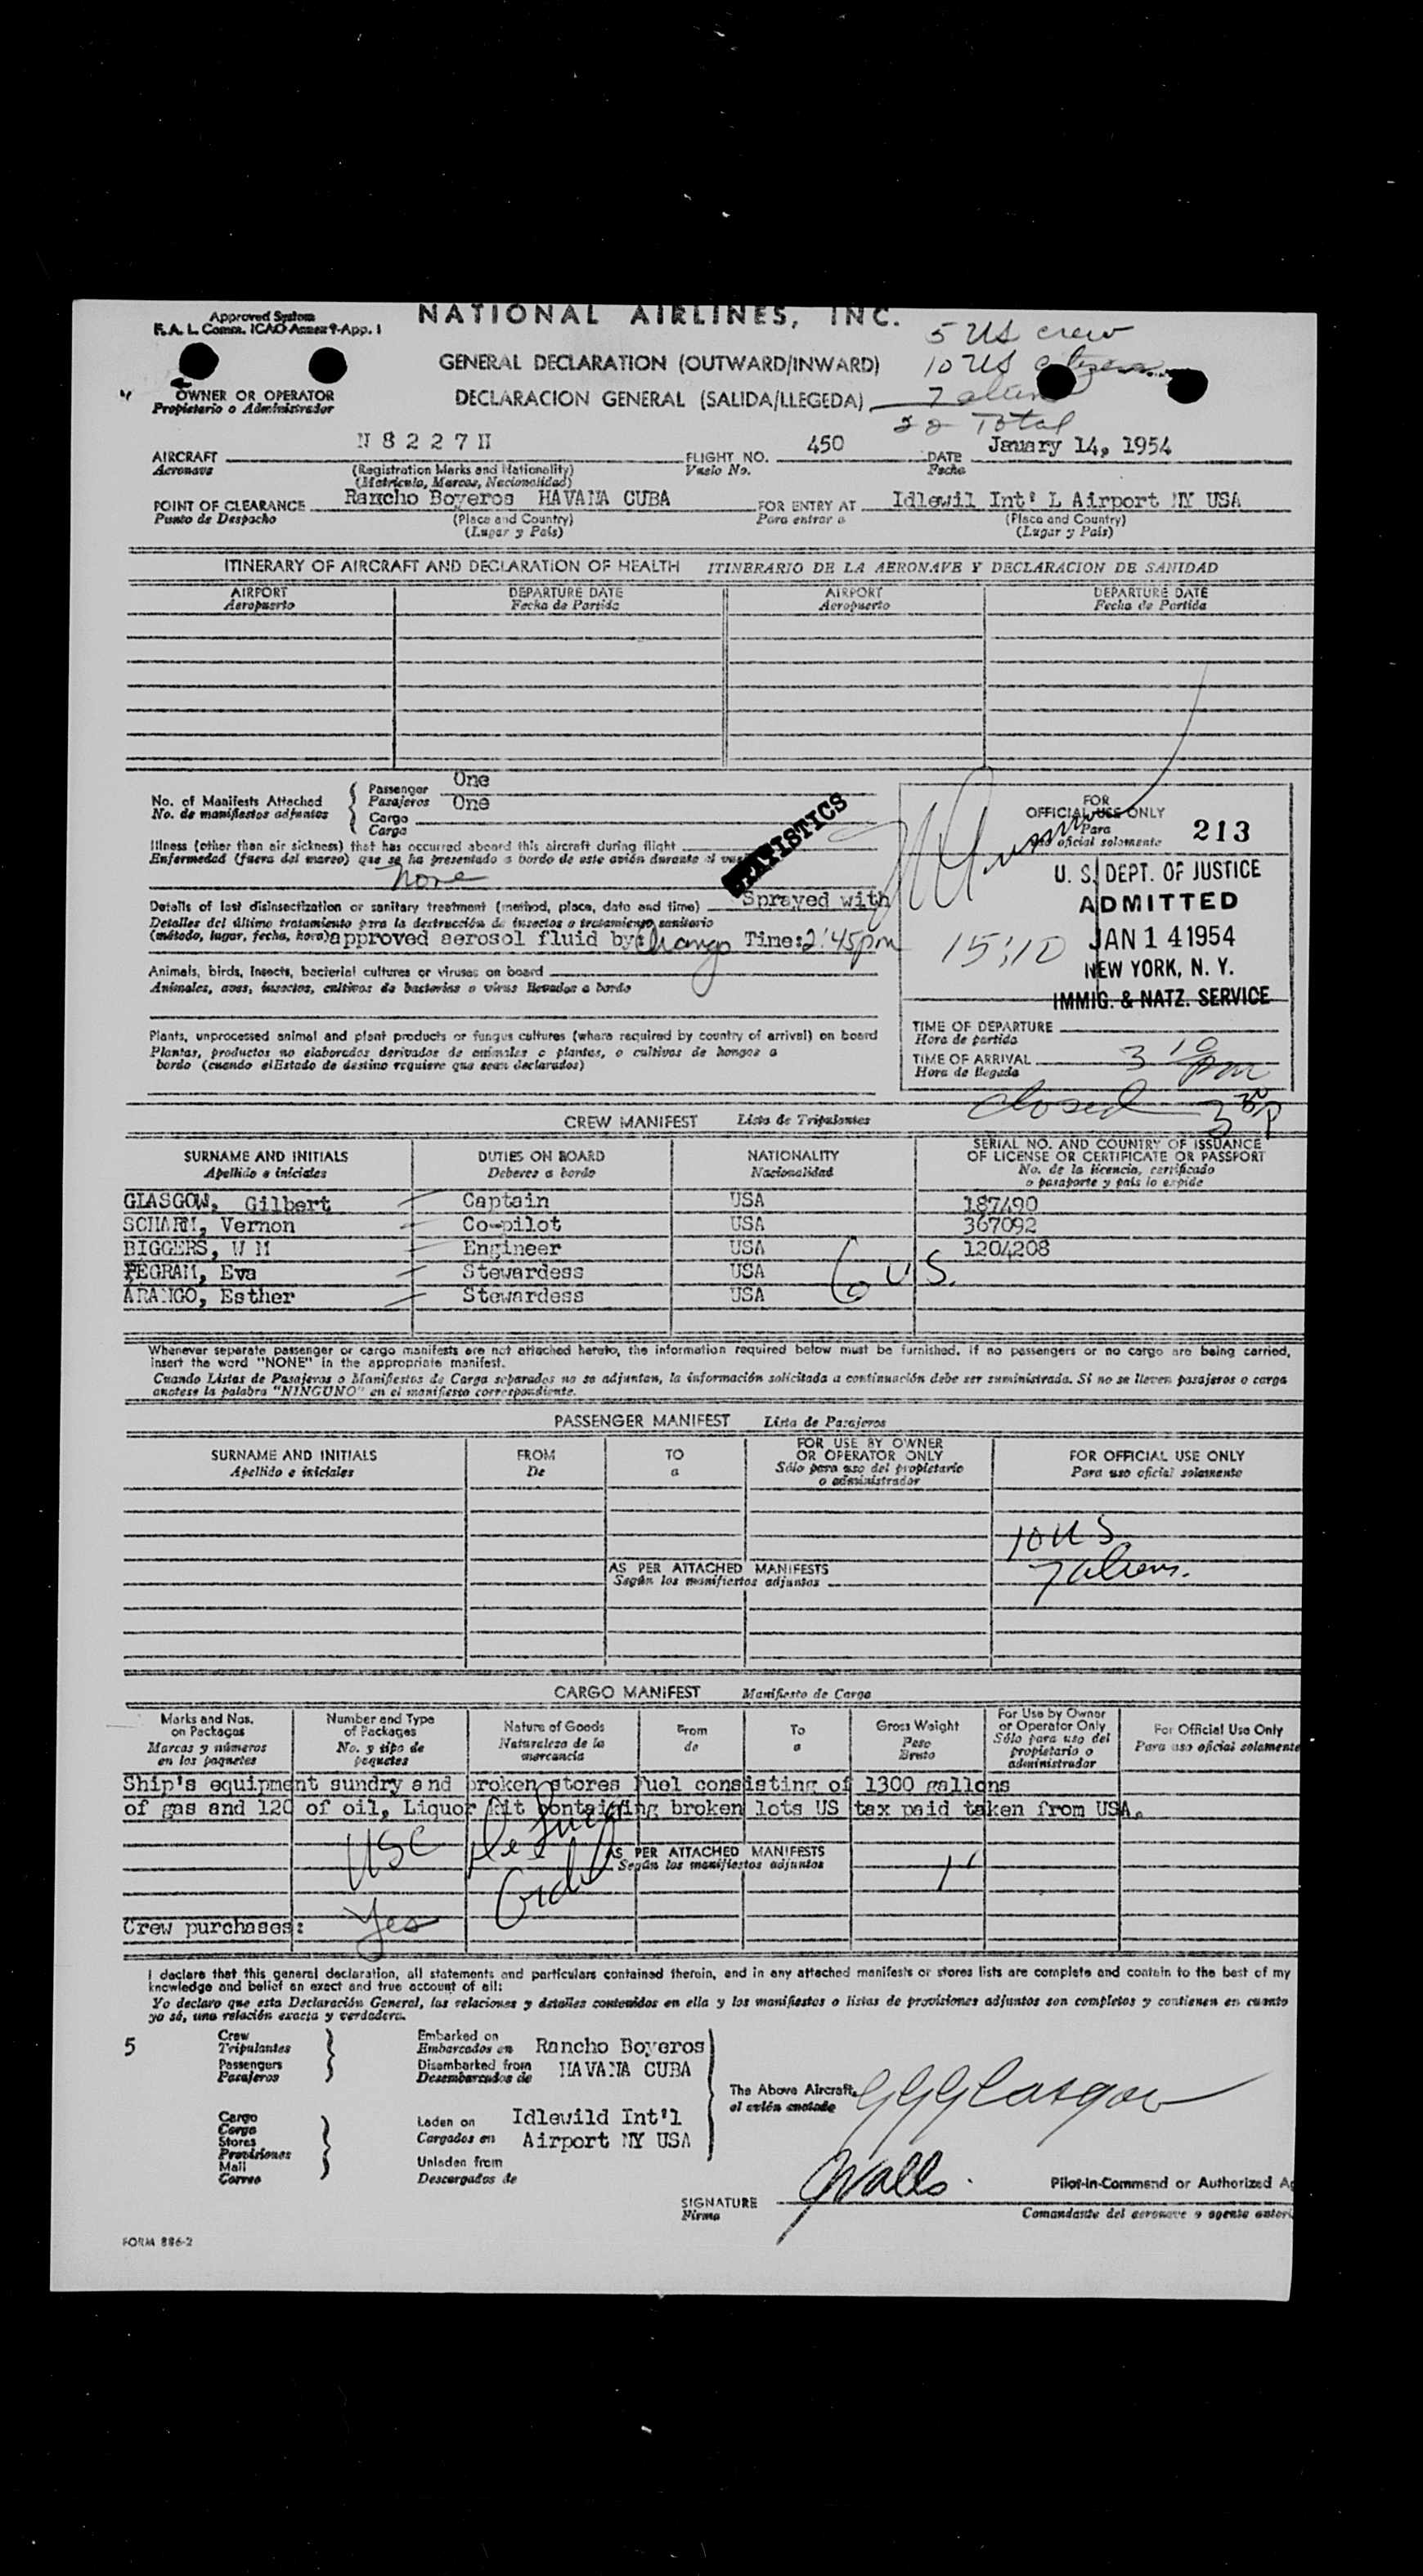 Approved System
F. A. L. Comm. ICAO Annex 9-App. 1
NATIONAL AIRLINES, INC.
5 US crew
GENERAL DECLARATION (OUTWARD/INWARD)
10 US citizens
OWNER OR OPERATOR
Propietario o Administrador
DECLARACION GENERAL (SALIDA/LLEGEDA)
7 aliens
22 Total
AIRCRAFT N8227H FLIGHT NO. 450 DATE January 14, 1954
Aeronave (Registration Marks and Nationality) Vuelo No. Fecha
(Matricula, Marcas, Nacionalidad)
POINT OF CLEARANCE Rancho Boyeros HAVANA CUBA FOR ENTRY AT Idlewil Int' L Airport NY USA
Punto de Despacho (Place and Country) Para entrar a (Place and Country)
(Lugar y País) (Lugar y País)
ITINERARY OF AIRCRAFT AND DECLARATION OF HEALTH ITINERARIO DE LA AERONAVE Y DECLARACION DE SANIDAD
AIRPORT DEPARTURE DATE AIRPORT DEPARTURE DATE
Aeropuerto Fecha de Partida Aeropuerto Fecha de Partida
No. of Manifests Attached
No. de manifiestos adjuntos
Passenger One
Pasajeros One
Cargo
Carga
STATISTICS
Illness (other than air sickness) that has occurred aboard this aircraft during flight
Enfermedad (fuera del mareo) que se ha presentado a bordo de este avión durante el
None
Details of last disinsectization or sanitary treatment (method, place, date and time) Sprayed with
Detalles del último tratamiento para la destrucción de insectos o tratamiento sanitario
(método, lugar, fecha, hora) approved aerosol fluid by: Time: 2:45pm
Animals, birds, insects, bacterial cultures or viruses on board
Animales, aves, insectos, cultivos de bacterias o virus llevados a bordo
Plants, unprocessed animal and plant products or fungus cultures (where required by country of arrival) on board
Plantas, productos no elaborados derivados de animales o plantas, o cultivos de hongos a
bordo (cuando el Estado de destino requiere que sean declarados)
FOR
OFFICIAL USE ONLY
Para
uso oficial solamente
213
U. S. DEPT. OF JUSTICE
ADMITTED
15:10
JAN 14 1954
NEW YORK, N. Y.
IMMIG. & NATZ. SERVICE
TIME OF DEPARTURE
Hora de partida
TIME OF ARRIVAL 3 10 pm
Hora de llegada
closed 3 30 p
CREW MANIFEST Lista de Tripulantes
SURNAME AND INITIALS DUTIES ON BOARD NATIONALITY SERIAL NO. AND COUNTRY OF ISSUANCE
OF LICENSE OR CERTIFICATE OR PASSPORT
Apellido e iniciales Deberes a bordo Nacionalidad No. de la licencia, certificado
o pasaporte y país lo expide
GLASGOW, Gilbert Captain USA 187490
SCHARM, Vernon Co-pilot USA 367092
BIGGERS, W M Engineer USA 1204208
PEGRAM, Eva Stewardess USA
ARANGO, Esther Stewardess USA
6 U.S.
Whenever separate passenger or cargo manifests are not attached hereto, the information required below must be furnished. If no passengers or no cargo are being carried,
insert the word "NONE" in the appropriate manifest.
Cuando Listas de Pasajeros o Manifiestos de Carga separados no se adjuntan, la información solicitada a continuación debe ser suministrada. Si no se lleven pasajeros o carga
anotese la palabra "NINGUNO" en el manifiesto correspondiente.
PASSENGER MANIFEST Lista de Pasajeros
SURNAME AND INITIALS FROM TO FOR USE BY OWNER
OR OPERATOR ONLY FOR OFFICIAL USE ONLY
Apellido e iniciales De a Sólo para uso del propietario
o administrador Para uso oficial solamente
10 US
7 aliens.
AS PER ATTACHED MANIFESTS
Según los manifiestos adjuntos
CARGO MANIFEST Manifiesto de Carga
Marks and Nos.
on Packages
Marcas y números
en los paquetes
Number and Type
of Packages
No. y tipo de
paquetes
Nature of Goods
Naturaleza de la
mercancia
From
de
To
a
Gross Weight
Peso
Bruto
For Use by Owner
or Operator Only
Sólo para uso del
propietario o
administrador
For Official Use Only
Para uso oficial solamente
Ship's equipment sundry and broken stores Fuel consisting of 1300 gallons
of gas and 120 of oil, Liquor Kit containing broken lots US tax paid taken from USA.
USC
AS PER ATTACHED MANIFESTS
Según los manifiestos adjuntos
Crew purchases: Yes
I declare that this general declaration, all statements and particulars contained therein, and in any attached manifests or stores lists are complete and contain to the best of my
knowledge and belief an exact and true account of all:
Yo declaro que esta Declaración General, las relaciones y detalles contenidos en ella y los manifiestos o listas de provisiones adjuntos son completos y contienen en cuanto
yo sé, una relación exacta y verdadera.
5
Crew
Tripulantes
Passengers
Pasajeros
Embarked on
Embarcados en
Disembarked from
Desembarcados de
Rancho Boyeros
HAVANA CUBA
The Above Aircraft
el avión anotado
GGGlasgow
Cargo
Carga
Stores
Provisiones
Mail
Correo
Laden on
Cargados en
Unladen from
Descargados de
Idlewild Int'l
Airport NY USA
SIGNATURE
Firma
Pilot-in-Command or Authorized
Comandante del aeronave o agente
FORM 886-2